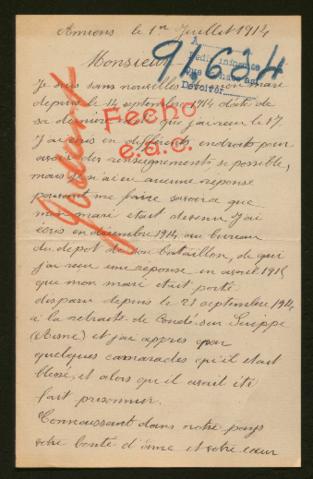 Amiens le 1er Juillet 1914
Monsieur
91,624
A
Devolver
Fecho
e.a.c.
Je suis sans nouvelles de mon mari
depuis le 14 septembre 1914 date de
sa dernière que j'ai reçu le 17
J'ai écris en différents endroits pour
avoir des renseignements, si possible,
mais je n'ai eu aucune réponse
pouvant me faire savoir ce que
mon mari était devenu J'ai
écris en décembre 1914, au bureau
du depot de son bataillon, de qui
j'ai reçu une réponse en avril 1915
que mon mari était porté
disparu depuis le 21 septembre 1914
à la retraite de Condé-sur Suippe
(Aisne) et j'ai appris par
quelques camarades qu'il était
blessé, et alors que il avait été
fait prisonnier.
Connaissant dans notre pays
votre bonté d'âme et votre cœur